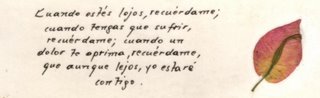 Cuando estés lejos, recuérdame;
cuando tengas que sufrir,
recuérdame; cuando un
dolor te oprima, recuérdame,
que aunque lejos, yo estaré
contigo.